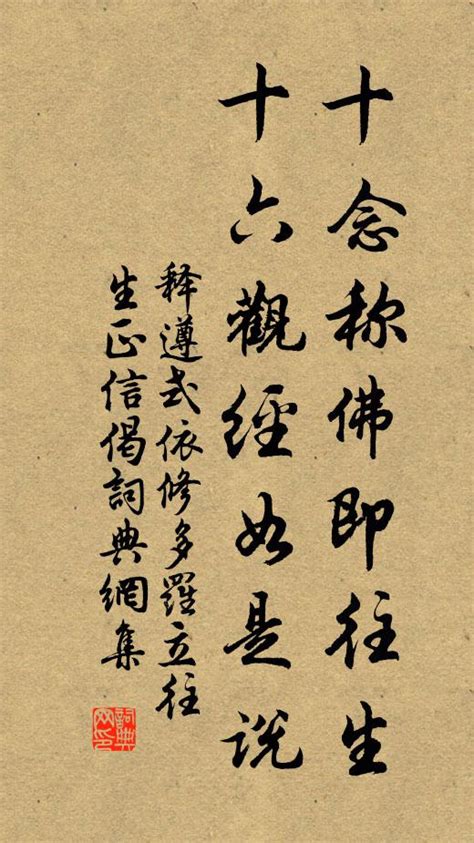 十念称佛即往生
十六觀經如是说
释遵式依修多羅立往
生正信偈詞典網集
詞典网印